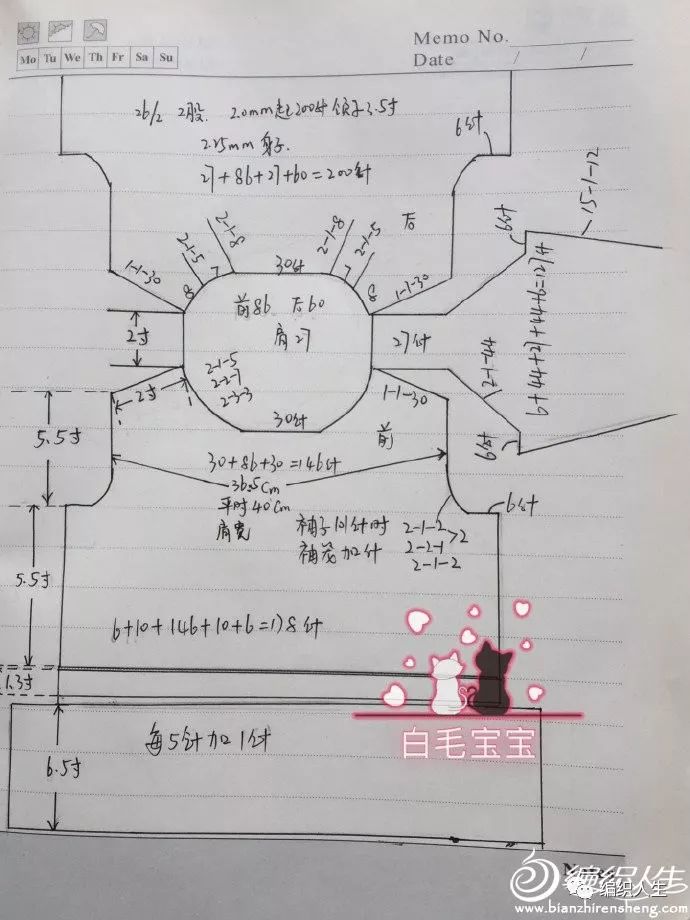 Memo No.
Mo Tu We Th Fr Sa Su
Date / /
26/2 2股. 2.0mm起200针 领子3.5寸
2.25mm 身子.
27+86+27+60=200针
6针
15-1-12
6针
后
2-1-8
2-1-5
7
8
1-1-30
30针
2-1-8
2-1-5
7
8
1-1-30
前86 后60
肩27
2寸
27针
2-1-5
2-2-7
2-3-3
2寸
30针
1-1-30
前
2-1-44
6针
5.5寸
30+86+30=146针
36.5cm
平时40cm
肩宽
袖子101针时
袖笼加针
2-1-2
2-2-1 >2
2-1-2
6针
5.5寸
6+10+146+10+6=178针
1.3寸
6.5寸
每5针加1针
白毛宝宝
编织人生
编织人生
www.bianzhirensheng.com